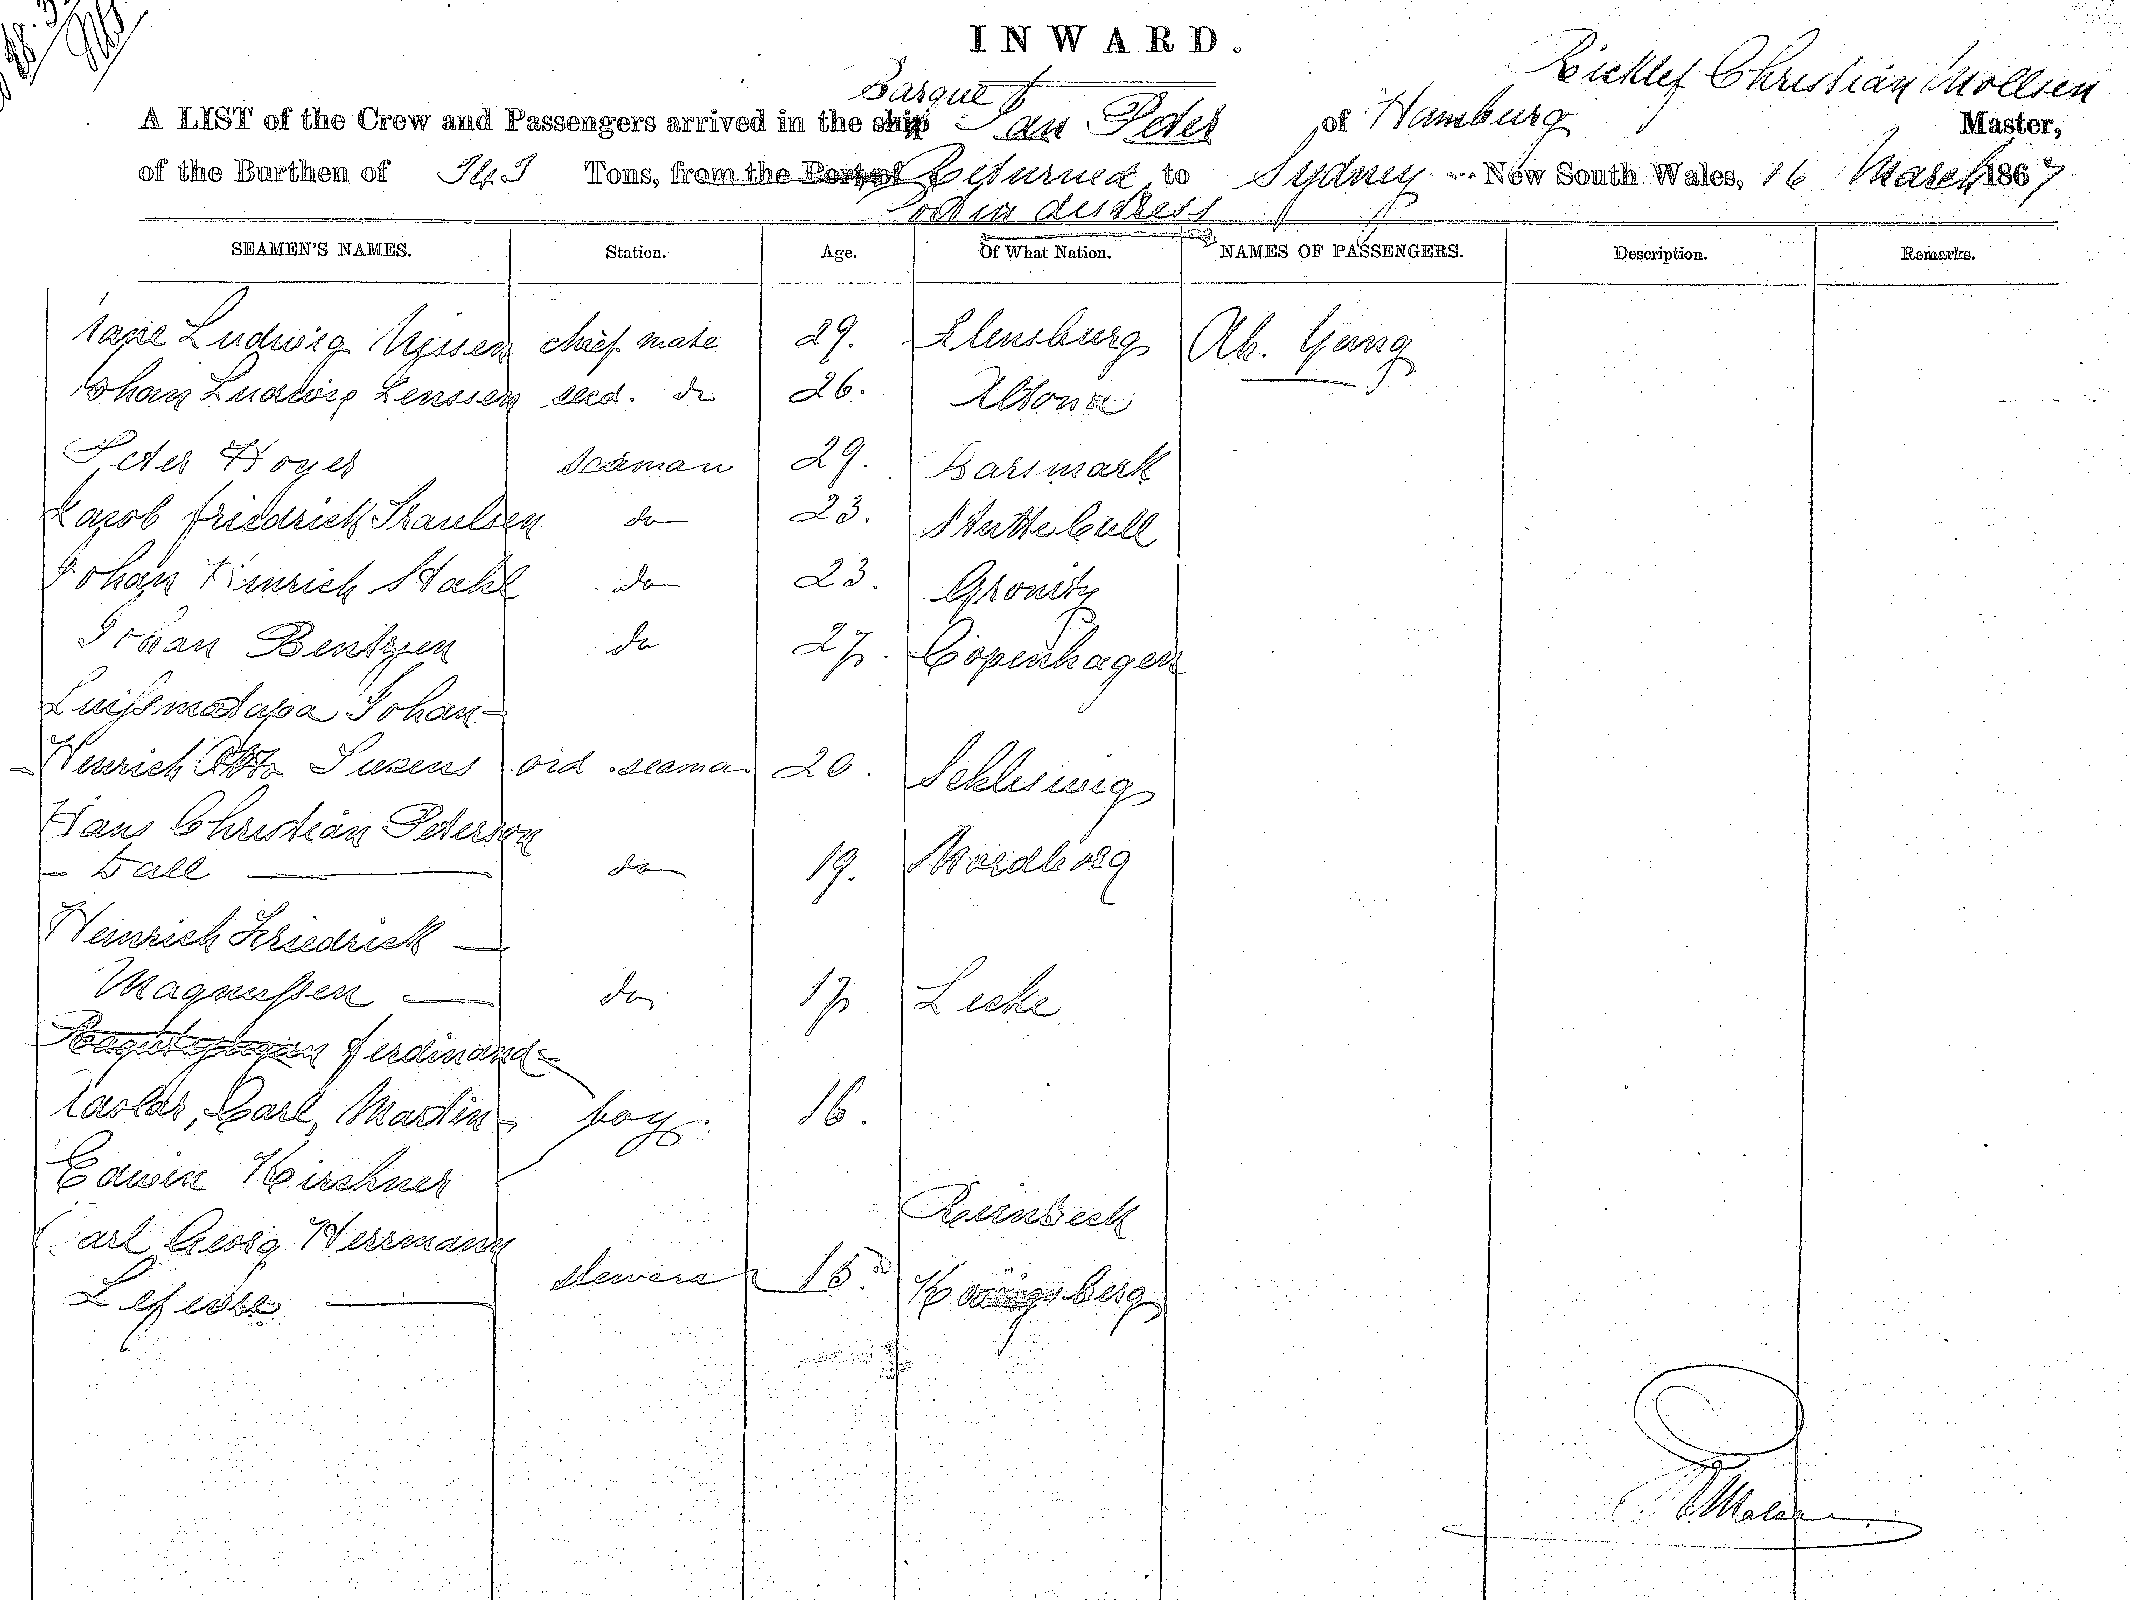 INWARD.
Barque
Christian
A LIST of the Crew and Passengers arrived in the ship Peter of Hamburg Master,
of the Burthen of Tons, from the Port of Returned to Sydney New South Wales, 16 March 1867
in distress
SEAMEN'S NAMES. Station. Age. Of What Nation. NAMES OF PASSENGERS. Description. Remarks.
Ludwig Nissen chief mate 29. Flensburg Ah. Gung
Johan Ludwig Lenssen secd. do 26. Altona
Peter Hoyer seaman 29. Barsmark
Jacob friedrich Paulsen do 23.
Johan Hinrich Stahl do 23. Gronitz
Johan Bentzen do 27. Copenhagen
Johan-
-Heinrich ord seaman 20. Schleswig
Hans Christian Peterson
- Fall do 19. Nordborg
Heinrich Friedrich
Magnussen do 17 Lecke
ferdinand-
Carl, Martin boy. 16.
Edwin Kirshner
Reinbeck
Carl Georg Herrmann
steward 16. Königsberg